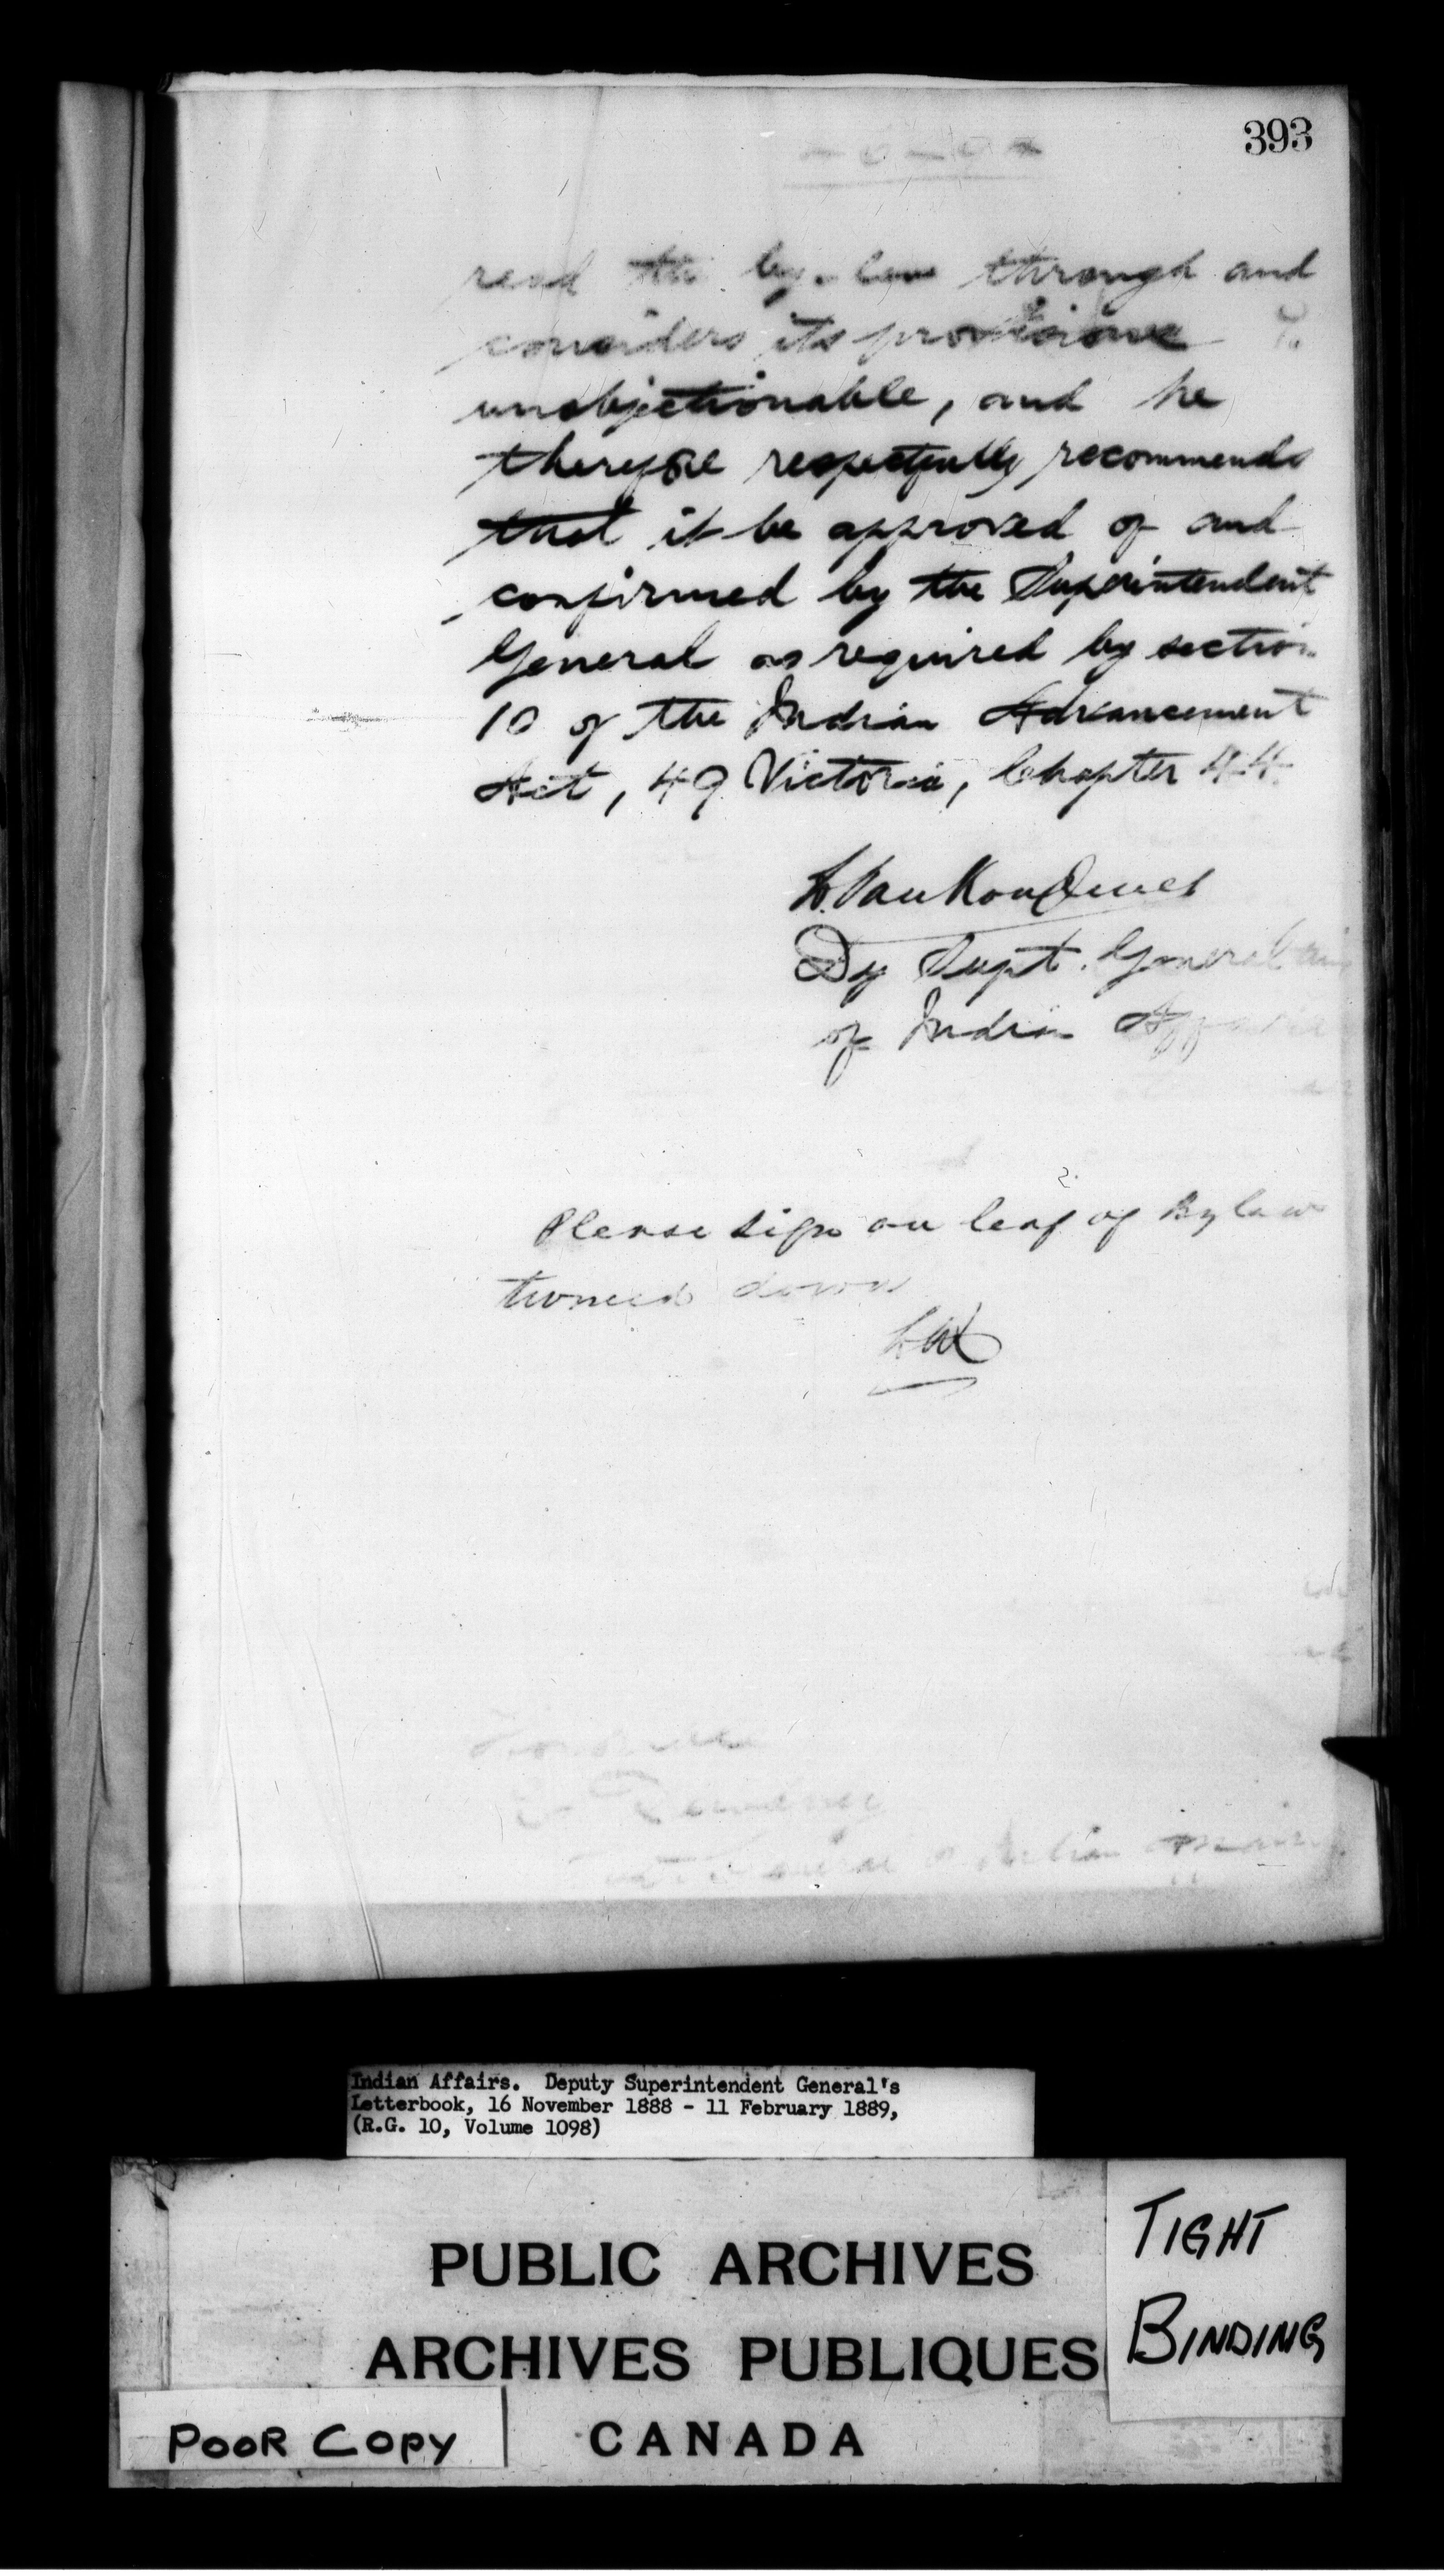 393
read the by-law through and
considers its provisions
unobjectionable, and he
therefore respectfully recommends
that it be approved of and
confirmed by the Superintendent
General as required by section
10 of the Indian Advancement
Act, 49 Victoria, Chapter 44.
L. VanKoughnet
Dy Supt. General
of Indian Affairs
Please sign on leaf of Bylaw
turned down
LVK
Indian Affairs. Deputy Superintendent General's
Letterbook, 16 November 1888 - 11 February 1889,
(R.G. 10, Volume 1098)
PUBLIC ARCHIVES
ARCHIVES PUBLIQUES
CANADA
TIGHT
BINDING
POOR COPY